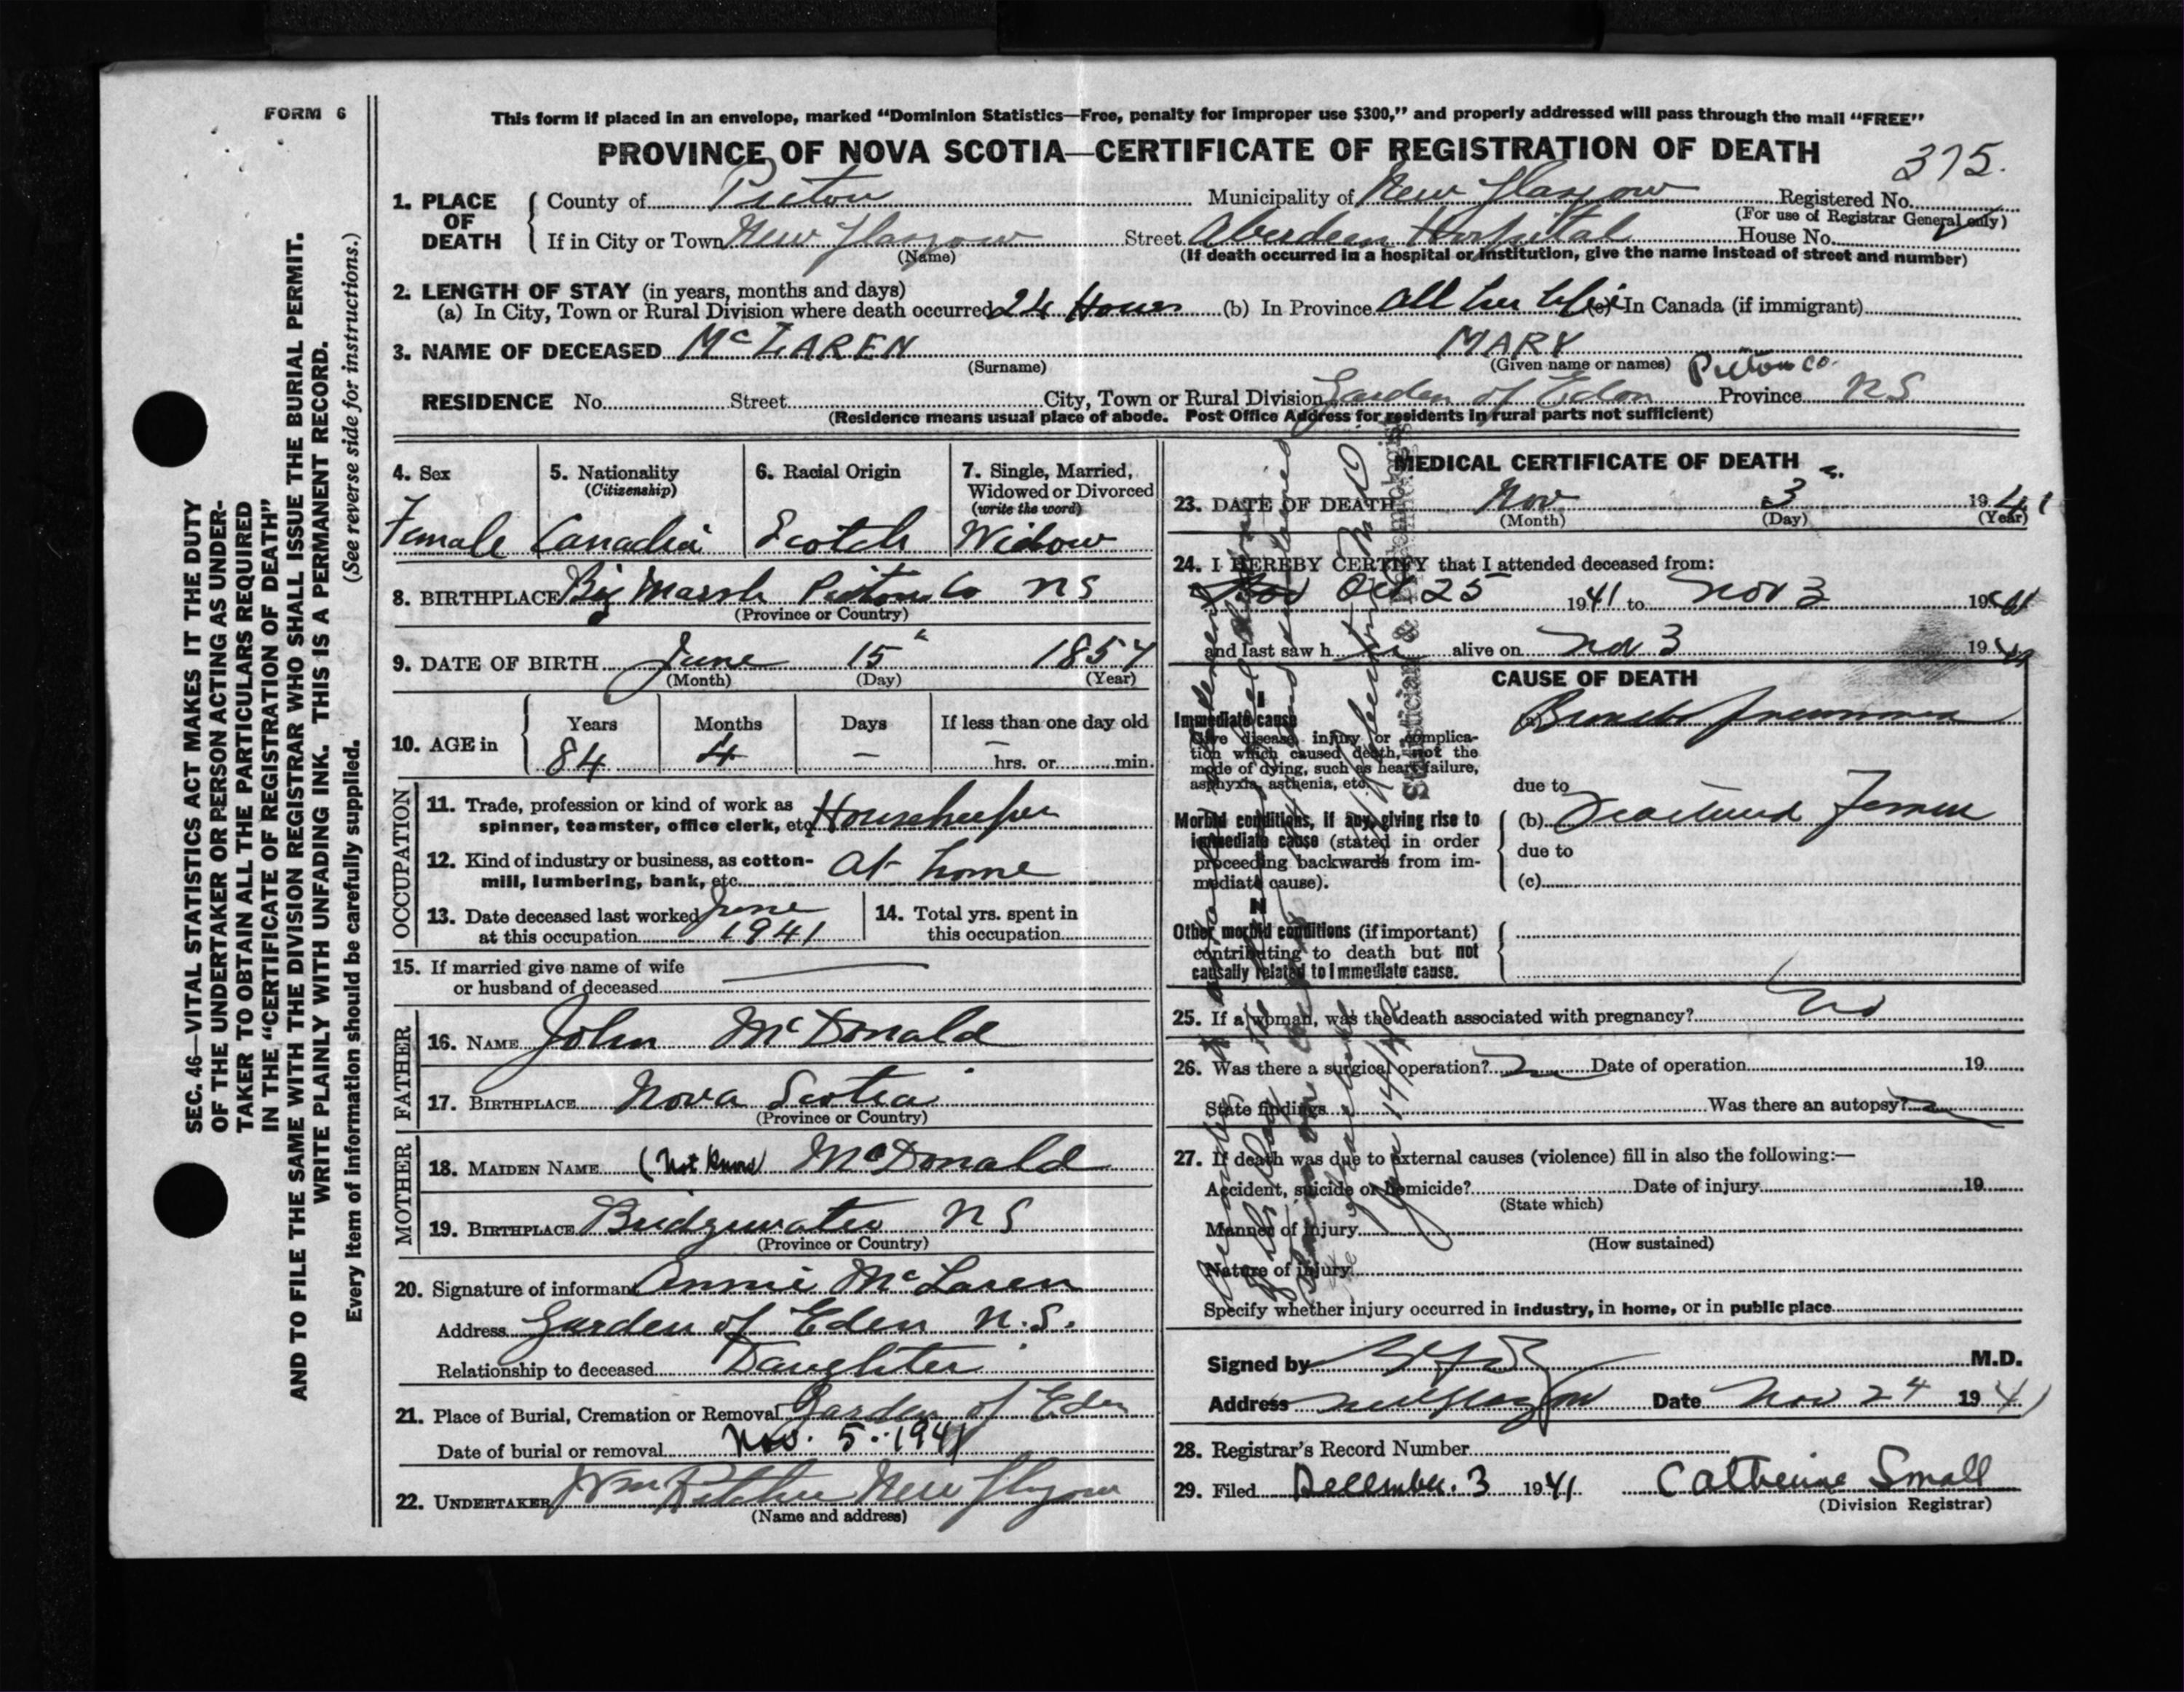 FORM 6
This form if placed in an envelope, marked "Dominion Statistics—Free, penalty for improper use $300," and properly addressed will pass through the mail "FREE"
PROVINCE OF NOVA SCOTIA—CERTIFICATE OF REGISTRATION OF DEATH
375.
1. PLACE OF DEATH
County of Pictou Municipality of New Glasgow Registered No.
(For use of Registrar General only)
If in City or Town New Glasgow Street Aberdeen Hospital House No.
(Name) (If death occurred in a hospital or institution, give the name instead of street and number)
2. LENGTH OF STAY (in years, months and days)
(a) In City, Town or Rural Division where death occurred 24 Hours (b) In Province all her life (c) In Canada (if immigrant)
3. NAME OF DECEASED McLAREN MARY
(Surname) (Given name or names) Pictou Co.
RESIDENCE No. Street City, Town or Rural Division Garden of Eden Province NS
(Residence means usual place of abode. Post Office Address for residents in rural parts not sufficient)
SEC. 46—VITAL STATISTICS ACT MAKES IT THE DUTY
OF THE UNDERTAKER OR PERSON ACTING AS UNDER-
TAKER TO OBTAIN ALL THE PARTICULARS REQUIRED
IN THE "CERTIFICATE OF REGISTRATION OF DEATH"
AND TO FILE THE SAME WITH THE DIVISION REGISTRAR WHO SHALL ISSUE THE BURIAL PERMIT.
WRITE PLAINLY WITH UNFADING INK. THIS IS A PERMANENT RECORD.
Every item of information should be carefully supplied. (See reverse side for instructions.)
4. Sex
Female
5. Nationality
(Citizenship)
Canadia
6. Racial Origin
Scotch
7. Single, Married,
Widowed or Divorced
(write the word)
Widow
8. BIRTHPLACE Big Marsh Pictou Co NS
(Province or Country)
9. DATE OF BIRTH June 15 1857
(Month) (Day) (Year)
10. AGE in
Years Months Days If less than one day old
84 4 — — hrs. or min.
OCCUPATION
11. Trade, profession or kind of work as
spinner, teamster, office clerk, etc. Housekeeper
12. Kind of industry or business, as cotton-
mill, lumbering, bank, etc. at home
13. Date deceased last worked June
at this occupation 1941
14. Total yrs. spent in
this occupation
15. If married give name of wife
or husband of deceased
FATHER
16. NAME John McDonald
17. BIRTHPLACE Nova Scotia
(Province or Country)
MOTHER
18. MAIDEN NAME (Not Known) McDonald
19. BIRTHPLACE Bridgewater NS
(Province or Country)
20. Signature of informant Annie McLaren
Address Garden of Eden N.S.
Relationship to deceased Daughter
21. Place of Burial, Cremation or Removal Garden of Eden
Date of burial or removal Nov. 5. 1941
22. UNDERTAKER New Glasgow
(Name and address)
MEDICAL CERTIFICATE OF DEATH
23. DATE OF DEATH Nov 3 1941
(Month) (Day) (Year)
24. I HEREBY CERTIFY that I attended deceased from:
Oct 25 1941 to Nov 3 1941
and last saw h er alive on Nov 3 19
CAUSE OF DEATH
I
Immediate cause
Give disease, injury or complica-
tion which caused death, not the
mode of dying, such as heart failure,
asphyxia, asthenia, etc.
(a) Broncho pneumonia
due to
Morbid conditions, if any, giving rise to
immediate cause (stated in order
proceeding backwards from im-
mediate cause).
(b) Fractured Femur
due to
(c)
II
Other morbid conditions (if important)
contributing to death but not
causally related to immediate cause.
25. If a woman, was the death associated with pregnancy? No
26. Was there a surgical operation? no Date of operation 19
State findings Was there an autopsy? no
27. If death was due to external causes (violence) fill in also the following:—
Accident, suicide or homicide? Date of injury 19
(State which)
Manner of injury
(How sustained)
Nature of injury
Specify whether injury occurred in industry, in home, or in public place
Signed by M.D.
Address New Glasgow Date Nov 24 1941
28. Registrar's Record Number
29. Filed December 3 1941. Catherine Small
(Division Registrar)
Jan 14/42
Statistician & Epidemiologist